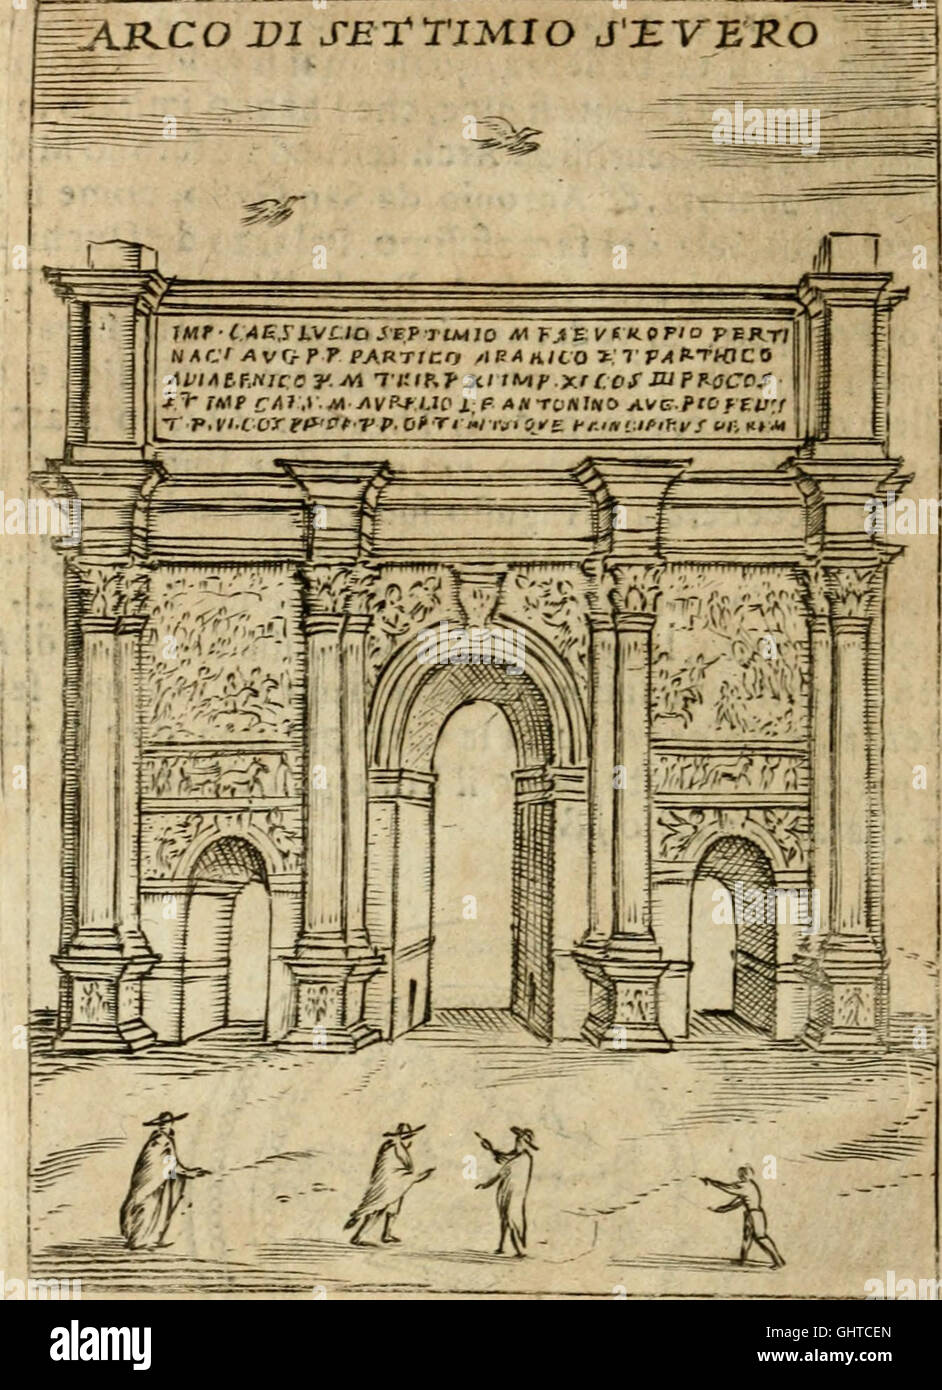 ARCO DI SETTIMIO SEVERO
IMP. CAES LVCIO SEPTIMIO M F SEVERO PIO PERTI
NACI AVG P.P. PARTICO ARABICO ET PARTHICO
P. M TRIB P XI IMP. XI COS III PROCOS
ET IMP CAES. M. AVRELIO L F ANTONINO AVG. PIO FELIS
T. P. VI. COS OPTIMISQVE PRINCIPIBVS
alamy stock photo
alamy
Image ID: GHTCEN
www.alamy.com